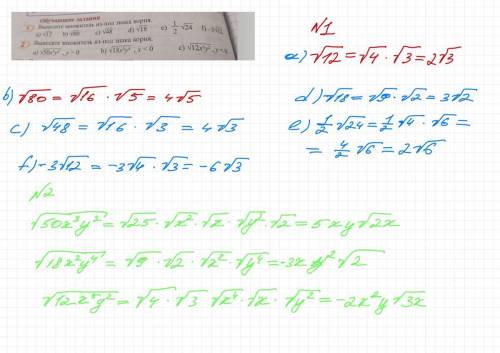 Обучающие задания
1. Вынесите множитель из-под знака корня.
a) √12 b) √80 c) √48 d) √18 e) 1/2 √24 f) -3√12
2. Вынесите множитель из-под знака корня.
a) √50x³y², y > 0 b) √18x²y⁴, x < 0 c) √12x⁵y², y < 0
N1
a) √12 = √4 · √3 = 2√3
b) √80 = √16 · √5 = 4√5
c) √48 = √16 · √3 = 4√3
d) √18 = √9 · √2 = 3√2
e) 1/2 √24 = 1/2 √4 · √6 =
= 4/2 √6 = 2√6
f) -3√12 = -3√4 · √3 = -6√3
N2
√50x³y² = √25 · √x² · √x · √y² · √2 = 5xy√2x
√18x²y⁴ = √9 · √2 · √x² · √y⁴ = -3x y² √2
√12x⁵y² = √4 · √3 √x⁴ · √x · √y² = -2x²y√3x